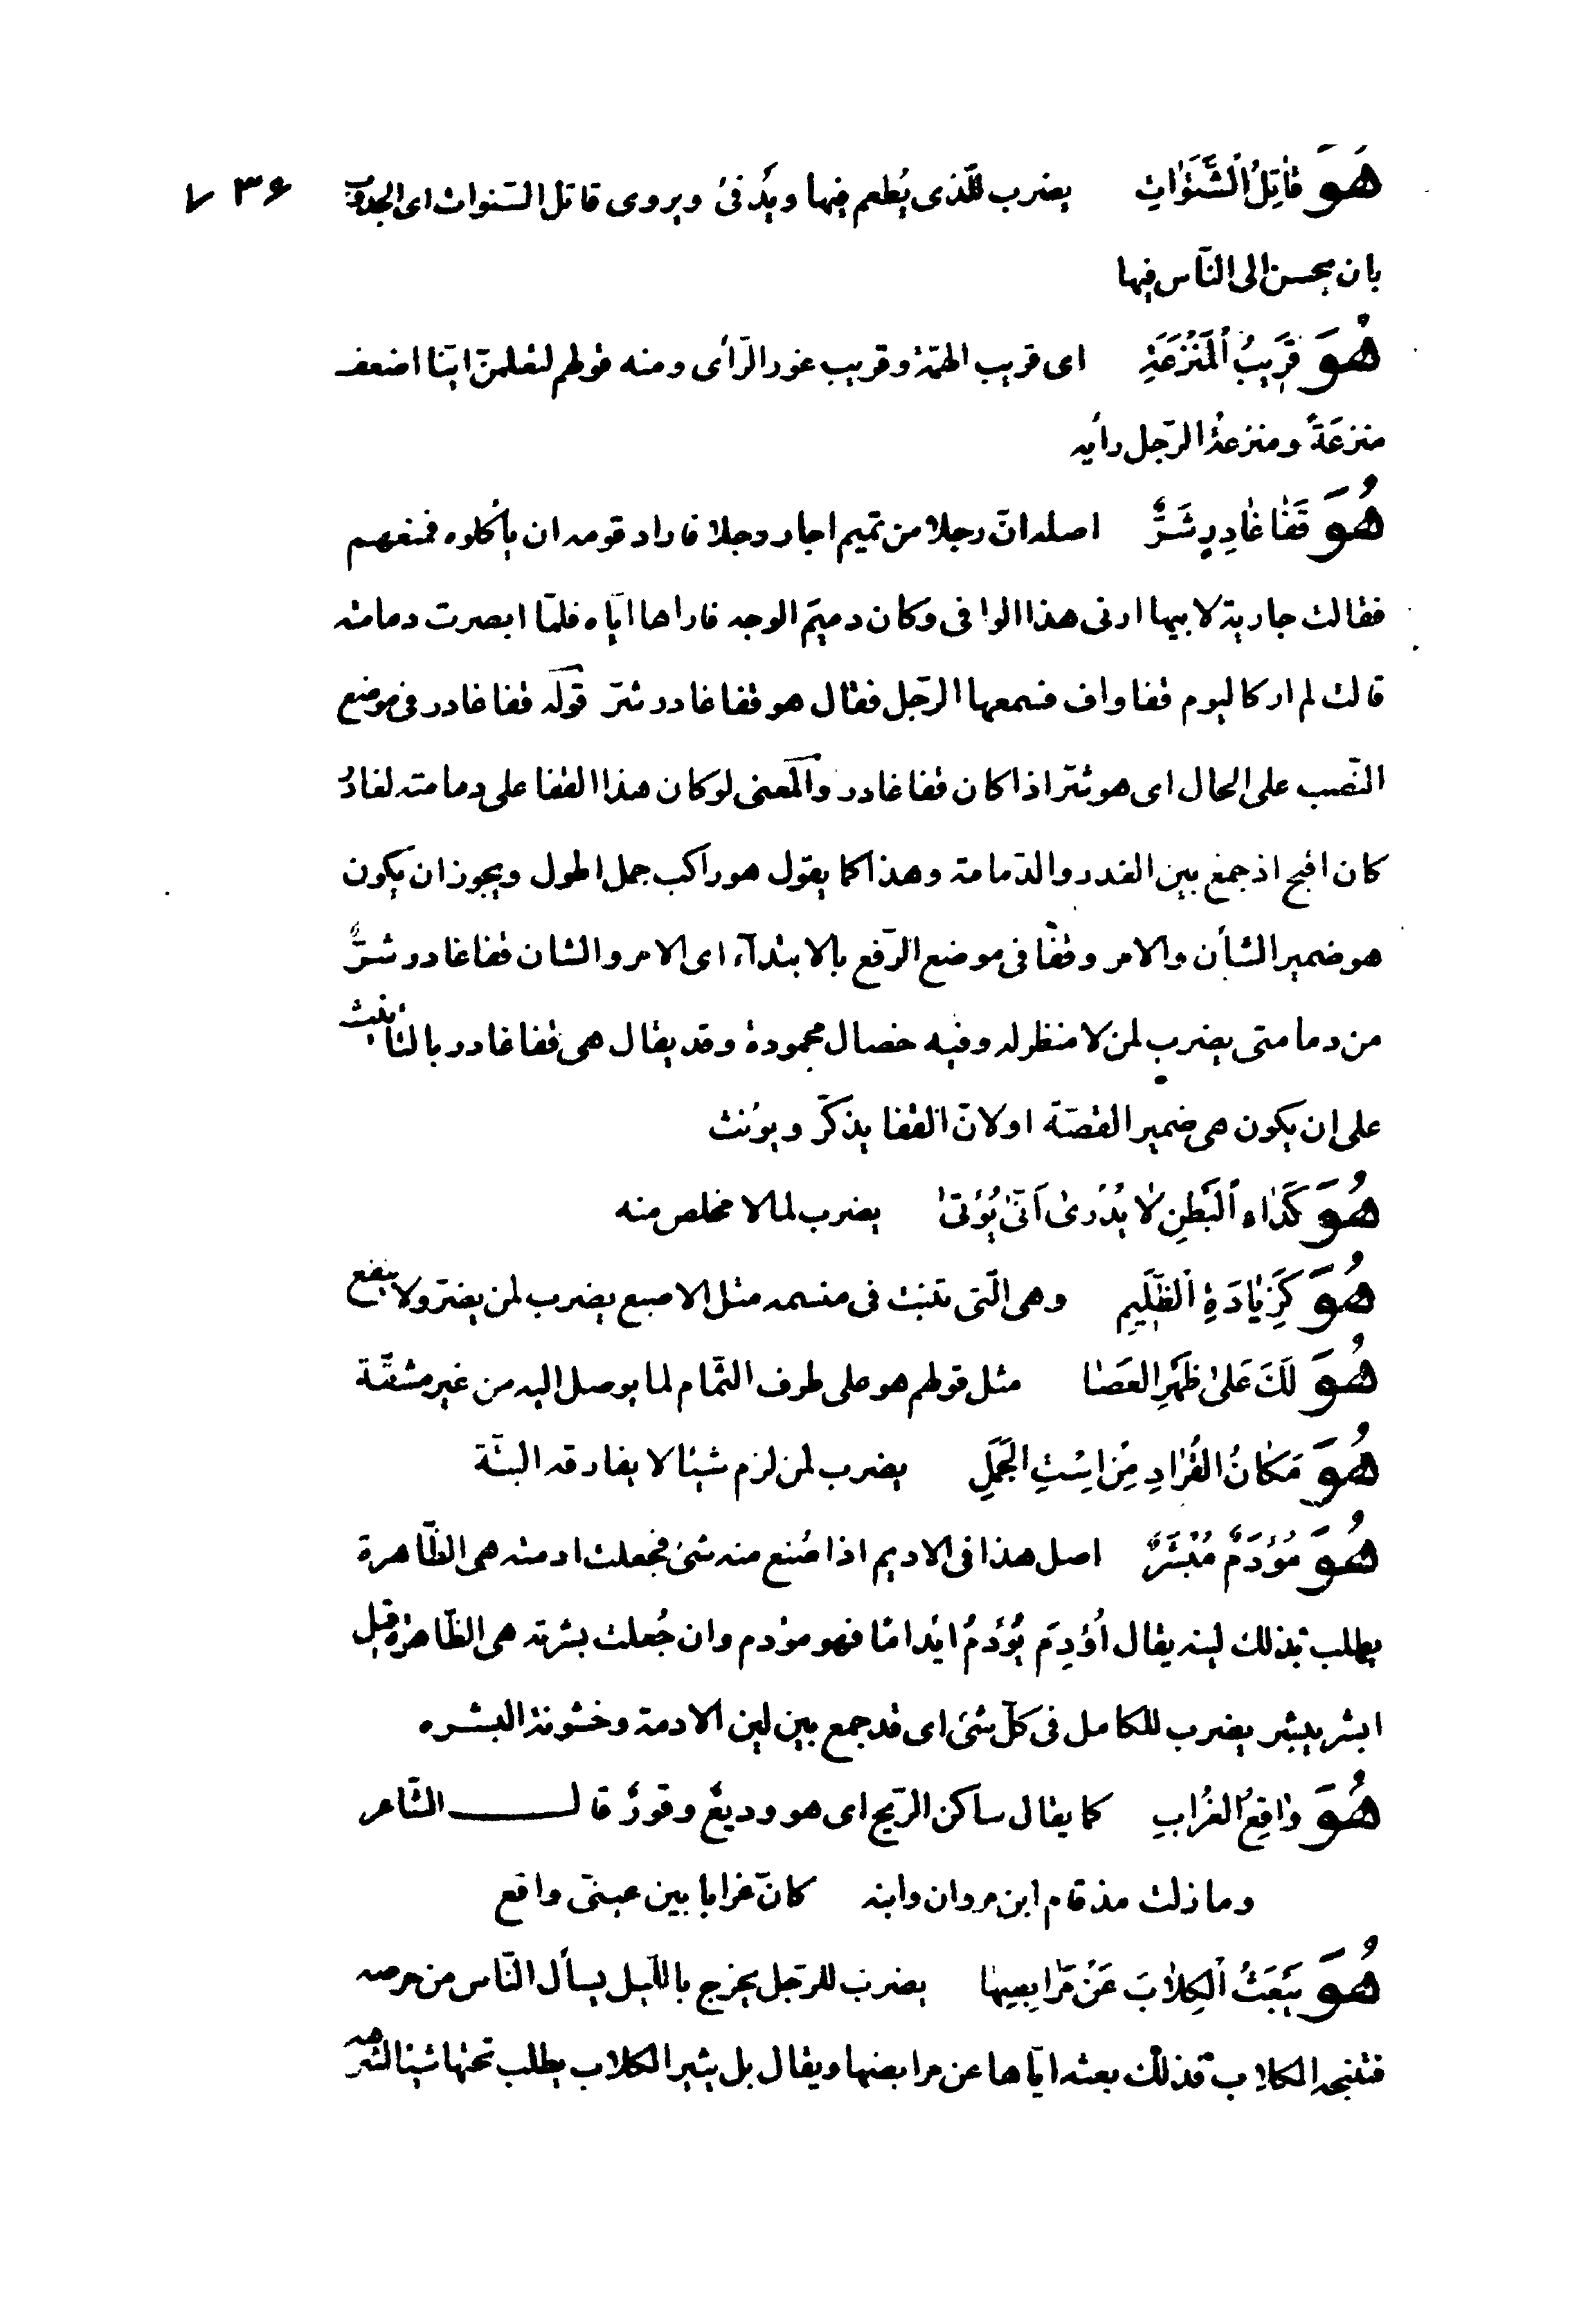 هُوَ قَاتِلُ الشَّتَوَاتِ يضرب للّذى يُطعم فيها ويُدفئ ويروى قاتل السّنوات اى الجدوب ۷۳۶
بان يحسن الى النّاس فيها
هُوَ قَرِيبُ الْمَنْزَعَةِ اى قريب الهمّة وقريب غور الرّأى ومنه قولهم لتعلمنّ ايّنا اضعف
منزعَةً ومنزعة الرّجل رأيه
هُوَ قَفَا غَادِرٍ شَرٌّ اصله انّ رجلا من تميم اجار رجلا فاراد قومه ان يأكلوه فمنعهم
فقالت جارية لابيها ارنى هذا الوافى وكان دميمَ الوجه فاراها ايّاه فلمّا ابصرت دمامته
قالت لم ار كاليوم قفا واف فسمعها الرّجل فقال هو قفا غادر شرّ قوله قفا غادر فى موضع
النّصب على الحال اى هو شرّ اذا كان قفا غادر والمعنى لو كان هذا القفا على دمامته لغادُ
كان اقبح اذ جمع بين الغدر والدّمامة وهذا كما يقول هو راكب جمل اطول ويجوز ان يكون
هو ضمير الشأن والامر وقفا فى موضع الرّفع بالابتدآء اى الامر والشان قفا غادر شرٌّ
من دمامتى يضرب لمن لا منظر له وفيه خصال محمودة وقد يقال هى قفا غادر بالتأنيث
على ان يكون هى ضمير القصّة او لانّ القفا يذكّر ويؤنث
هُوَ كَدَاءِ الْبَطْنِ لَا يُدْرىٰ اَنّىٰ يُؤْتىٰ يضرب لما لا مخلص منه
هُوَ كَزِيَادَةِ الظَّلِيمِ وهى الّتى تنبت فى منسمه مثل الاصبع يضرب لمن يضرّ ولا ينفع
هُوَ لَكَ عَلىٰ ظَهْرِ العَصَا مثل قولهم هو على طرف الثّمام لما يوصل اليه من غير مشقّة
هُوَ مَكَانُ القُرَادِ مِنْ اِسْتِ الجَمَلِ يضرب لمن لزم شيئا لا يفارقه البتّة
هُوَ مُؤْدَمٌ مُبْشَرٌ اصل هذا فى الاديم اذا صُنع منه شئ فجعلت ادمته هى الظّاهرة
يطلب بذلك لينه يقال اُؤْدِمَ يُؤْدَمُ ايْدامًا فهو مؤدم وان جُعلت بشرته هى الظّاهرة قيل
ابشر يبشر يضرب للكامل فى كلّ شئ اى قد جمع بين لين الادمة وخشونة البشره
هُوَ وَاقِعُ الغُرَابِ كما يقال ساكن الرّيح اى هو وديعٌ وقورٌ قال الشّاعر
وما زلت مذ قام ابن مروان وابنه كانّ غرابا بين عينىّ واقع
هُوَ يَبْعَثُ الْكِلَابَ عَنْ مَرَابِضِهَا يضرب للرّجل يخرج باللّيل يسأل النّاس من حرصه
فتنبحه الكلاب فذلك بعثه ايّاها عن مرابضها ويقال بل يثير الكلاب يطلب تحتها شيئا لشرهه